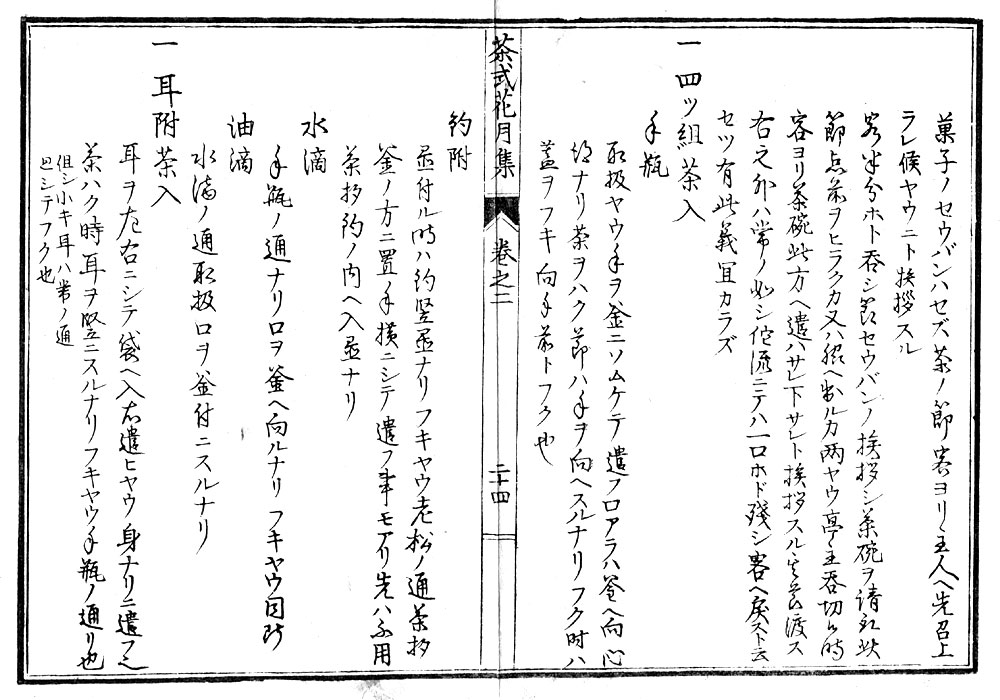 菓子ノセウバンハセズ茶ノ節客ヨリ主人ヘ先召上
ラレ候ヤウニト挨拶スル
客半分ホト呑シ節セウバンノ挨拶シ茶碗ヲ請取此
節点前ヲヒラクカ又ハ膝ヘ出ルカ両ヤウ亭主呑切ル時
容ヨリ茶碗此方ヘ遣ハサレ下サレト挨拶スル亭主渡ス
右之外ハ常ノ如シ他流ニテハ一口ホド残シ客ヘ戻スト云
セツ有此義宜カラズ
一四ツ組茶入
手瓶
取扱ヤウ手ヲ釜ニソムケテ遣フ口アラハ釜ヘ向心
得ナリ茶ヲハク節ハ手ヲ向ヘスルナリフク時ハ
蓋ヲフキ向手前トフク也
茶式花月集
卷之二
二十四
釣附
置付ル時ハ釣竪置ナリフキヤウ老松ノ通茶杓
釜ノ方ニ置ノ手横ニシテ遣フ事モアリ先ハ不用
茶杓釣ノ内ヘ入置ナリ
水滴
手瓶ノ通ナリ口ヲ釜ヘ向ルナリフキヤウ同断
油滴
水滴ノ通取扱口ヲ釜付ニスルナリ
一耳附茶入
耳ヲ左右ニシテ袋ヘ入右遣ヒヤウ身ナリニ遣フ之
茶ハク時耳ヲ竪ニスルナリフキヤウ手瓶ノ通リ也
但シ小キ耳ハ常ノ通
ニシテフク也